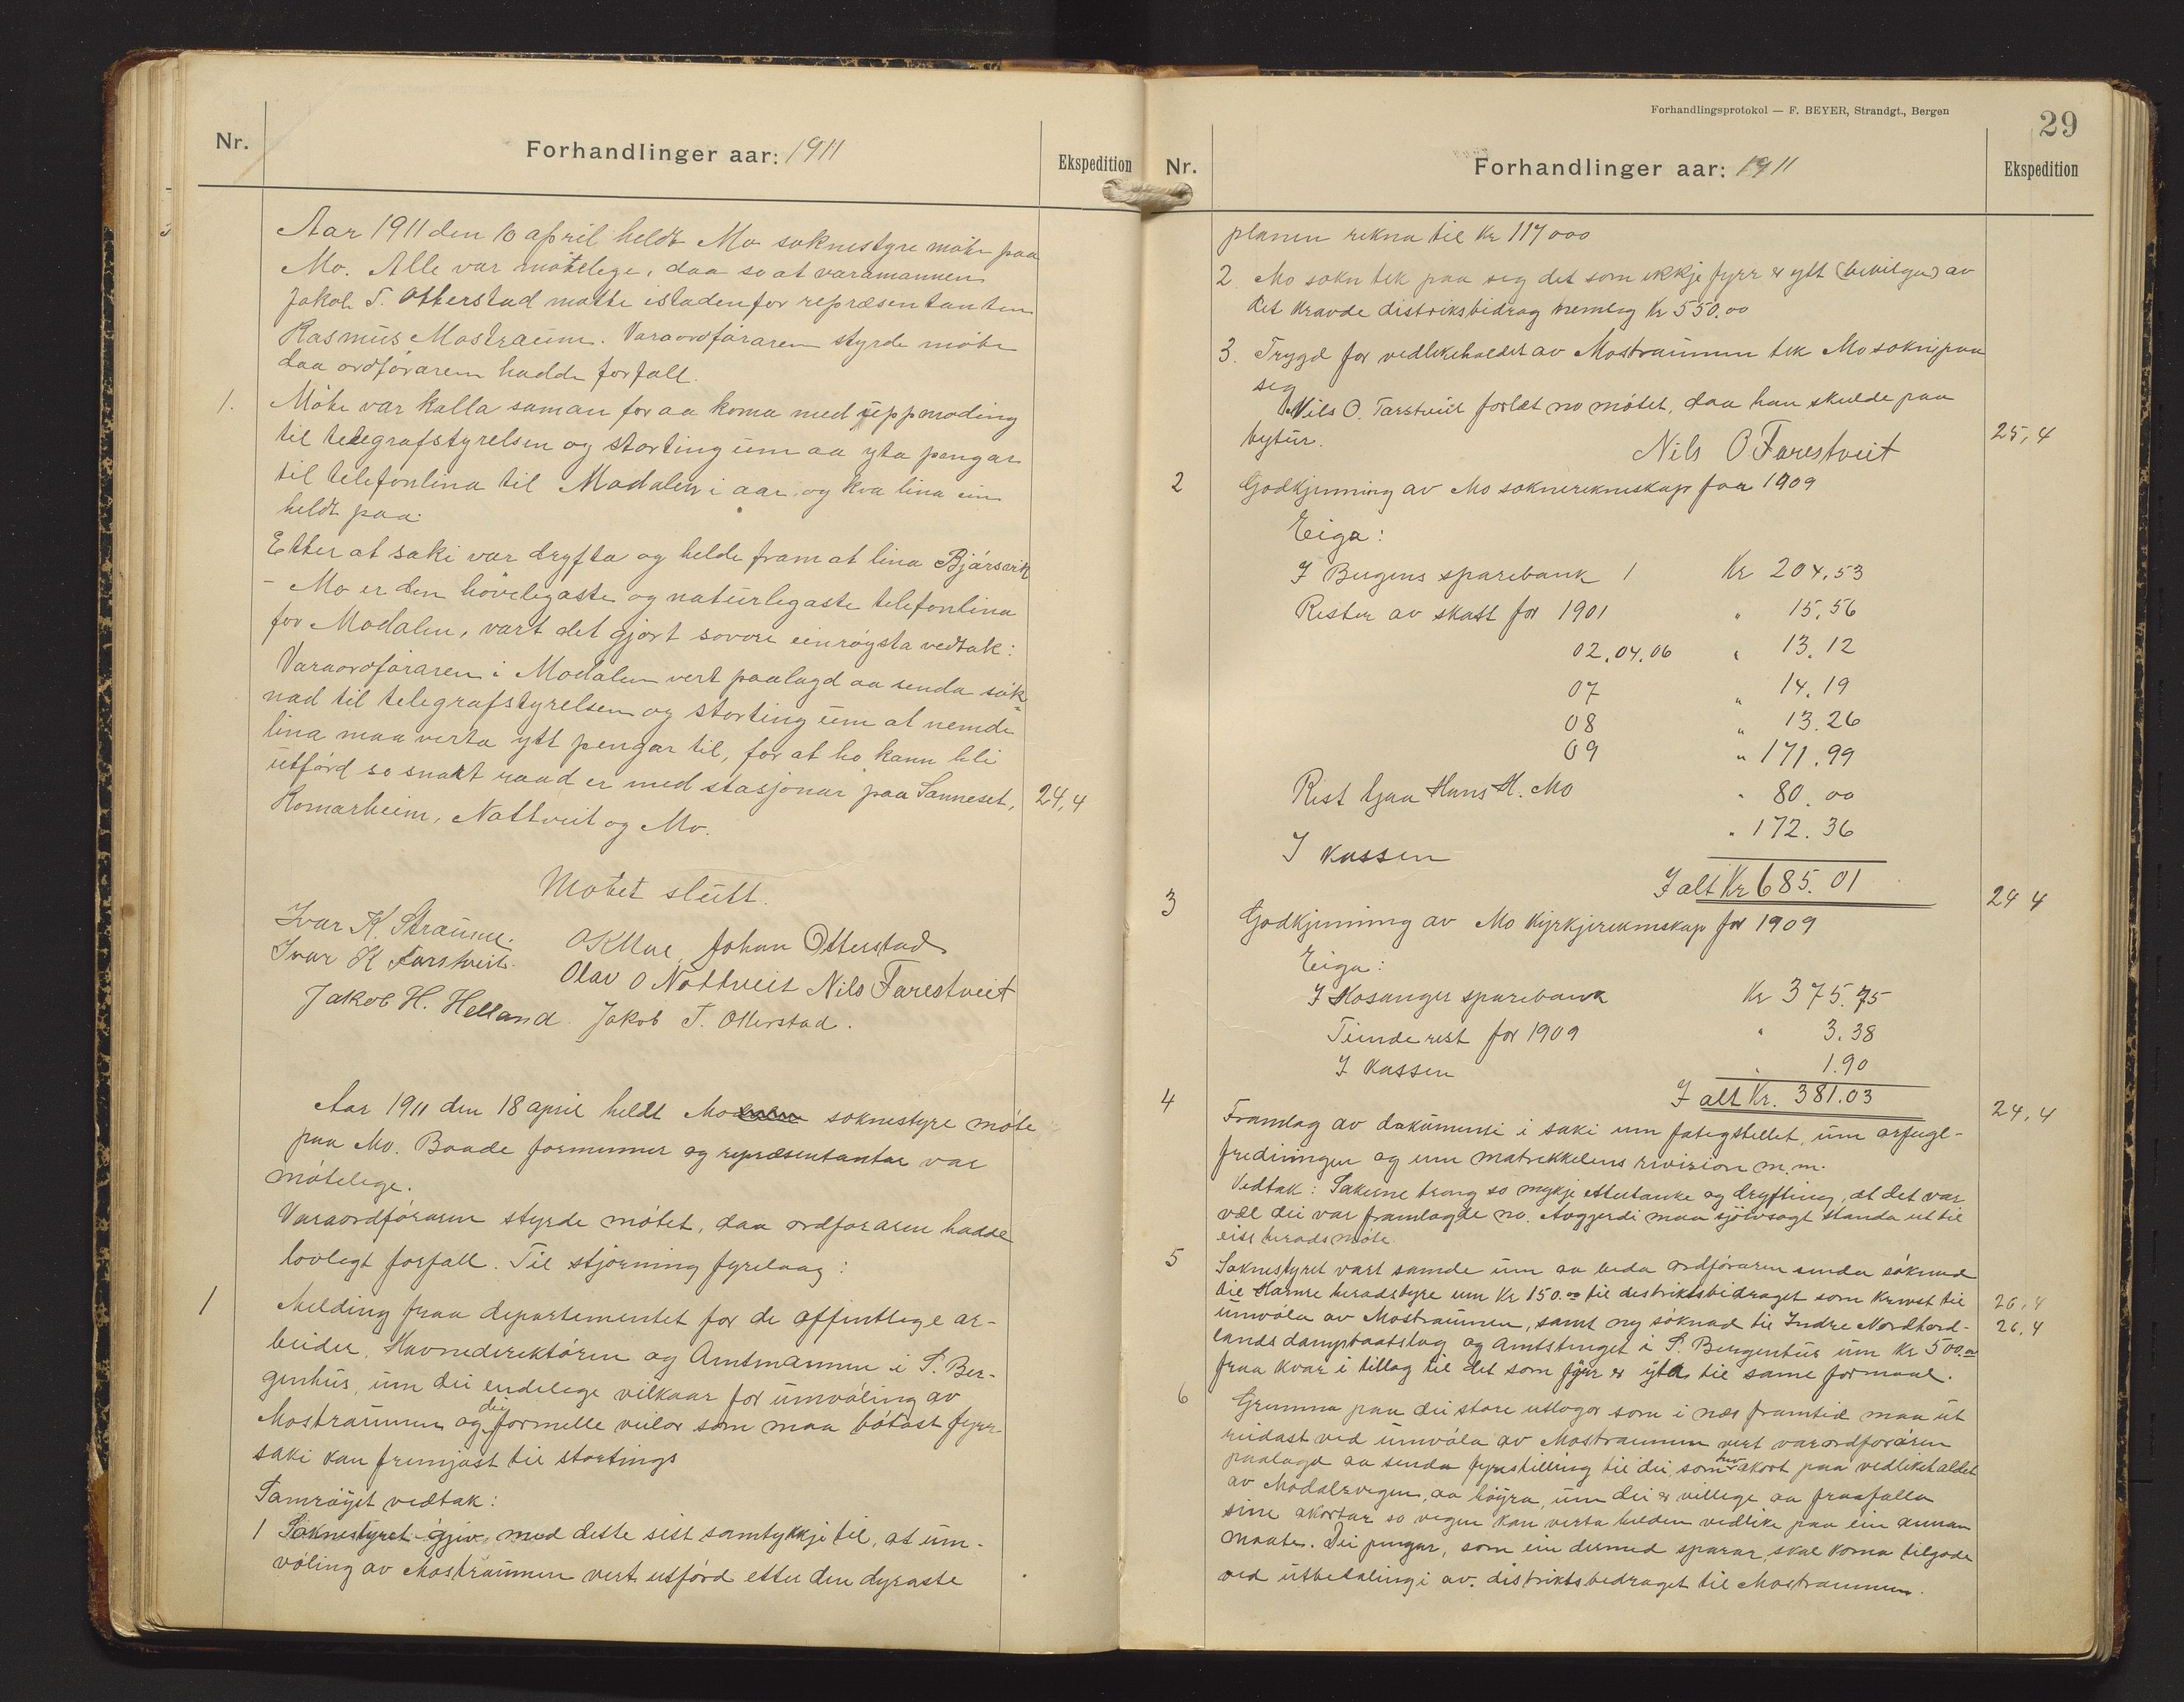 Nr.
Forhandlinger aar: 1911
Ekspedition
Aar 1911 den 10 april heldt Mo soknestyre møte paa
Mo. Alle var møtelege, daa so at varamannen
Jakob T. Otterstad møtte istadenfor repræsentanten
Rasmus Mostraum. Varaordføraren styrde møte
daa ordføraren hadde forfall.
1. Møte var kalla saman for aa koma med uppmoding
til telegrafstyrelsen og storting um aa yta pengar
til telefonlina til Modalen i aar og kva lina ein
heldt paa.
Etter at saki var dryfta og helde fram at lina Bjørsvik
- Mo er den høvelegaste og naturlegaste telefonlina
for Modalen, vart det gjort sovore einrøysta vedtak:
Varaordføraren i Modalen vert paalagd aa senda søk-
nad til telegrafstyrelsen og storting um at nemde
lina maa verta ytt pengar til, for at ho kann bli
utførd so snart raad er med stasjonar paa Sanneset, 24,4
Romarheim, Nattveit og Mo.
Møtet slutt.
Ivar K. Straume. OKMoe Johan Otterstad
Ivar K Farestveit. Olav O Nottveit Nils Farestveit
Jakob H. Helland. Jakob T. Otterstad.
Aar 1911 den 18 april heldt Mo soknestyre møte
paa Mo. Baade formenner og repræsentantar var
møtelege.
Varaordføraren styrde møtet, daa ordføraren hadde
lovlegt forfall. Til stjorning fyrelaag:
1 Melding fraa departementet for de offentlege ar-
beider, Havnedirektøren og Amtmannen i S. Ber-
genhus, um dei endelege vilkaar for umvøling av
Mostraumen og dei formelle veilor som maa bøtast fyrr
saki kan fremjast til stortings
Samrøyst vedtak:
1 Soknestyret gjev med dette sitt samtykkje til, at um-
vøling av Mostraumen vert utførd etter den dyraste
Forhandlingsprotokol — F. BEYER, Strandgt., Bergen
29
Nr.
Forhandlinger aar: 1911
Ekspedition
planen rekna til Kr 117000
2. Mo sokn tek paa seg det som ikkje fyrr er ytt (bevilga) av
det kravde distriksbidrag nemleg Kr 550.00
3. Trygd for vedlikehaldet av Mostraumen tek Mo sokn paa
seg
Nils O. Farestveit forlet no møtet, daa han skulde paa
bytur. 25,4
Nils O Farestveit
2 Godkjenning av Mo soknerekneskap for 1909
Eiga:
I Bergens sparebank 1 Kr 204.53
Rester av skatt for 1901 " 15.56
02.04.06 " 13.12
07 " 14.19
08 " 13.26
09 " 171.99
Rest hjaa Hans H. Mo " 80.00
I kassen " 172.36
I alt Kr 685.01
3 24 4
Godkjenning av Mo Kyrkjerekneskap for 1909
Eiga:
I Hosanger sparebank Kr 375.75
Tiende rest for 1909 " 3.38
I kassen " 1.90
I alt Kr. 381.03
4 24,4
Framlag av dokumenti i saki um fatigstellet, um ærfugl-
fredningen og um matrikkelens revision m.m.
Vedtak: Sakerne trong so mykje ettertanke og dryfting, at det var
vel dei var framlagde no. Avgjerdi maa sjølvsagt standa ut til
eitt heradsmøte.
5 Soknestyret vart samde um aa beda ordføraren senda søknad
til Hamre heradstyre um Kr 150.00 til distriktsbidraget som krevst til 26,4
umvøla av Mostraumen, samt ny søknad til Indre Nordhord- 26,4
lands dampbaatslag og Amtstinget i S. Bergenhus um Kr 500.00
fraa kvar i tillag til det som fyrr er yta til same formaal.
6 Grunna paa dei store utlogor som i nær framtid maa ut
reidast ved umvøla av Mostraumen vert varaordføraren
paalagd aa senda fyrestelling til dei, som hev akort paa vedlikehaldet
av Modalsvegen, aa høyra, um dei er villege aa fraafalla
sine akortar so vegen kan verta helden vedlike paa ein annan
maate. Dei pengar, som ein dermed sparar, skal koma tilgode
ved utbetalingi av distriktsbedraget til Mostraumen.